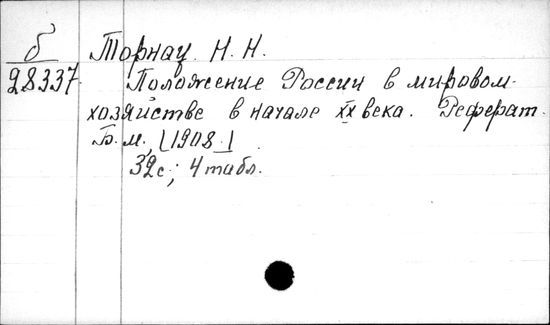 б
28337
Торнау Н. Н.
Положение России в мировом
хозяйстве в начале XX века. Реферат.
Б. м., [1908.]
32 с.; 4 табл.